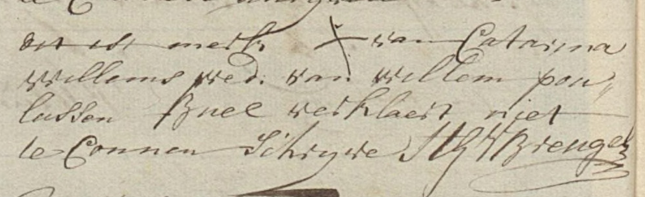 dit is merk X van Catarina
willems wed: van willem pou„
lussen Buel verklaert niet
te Connen Schryve